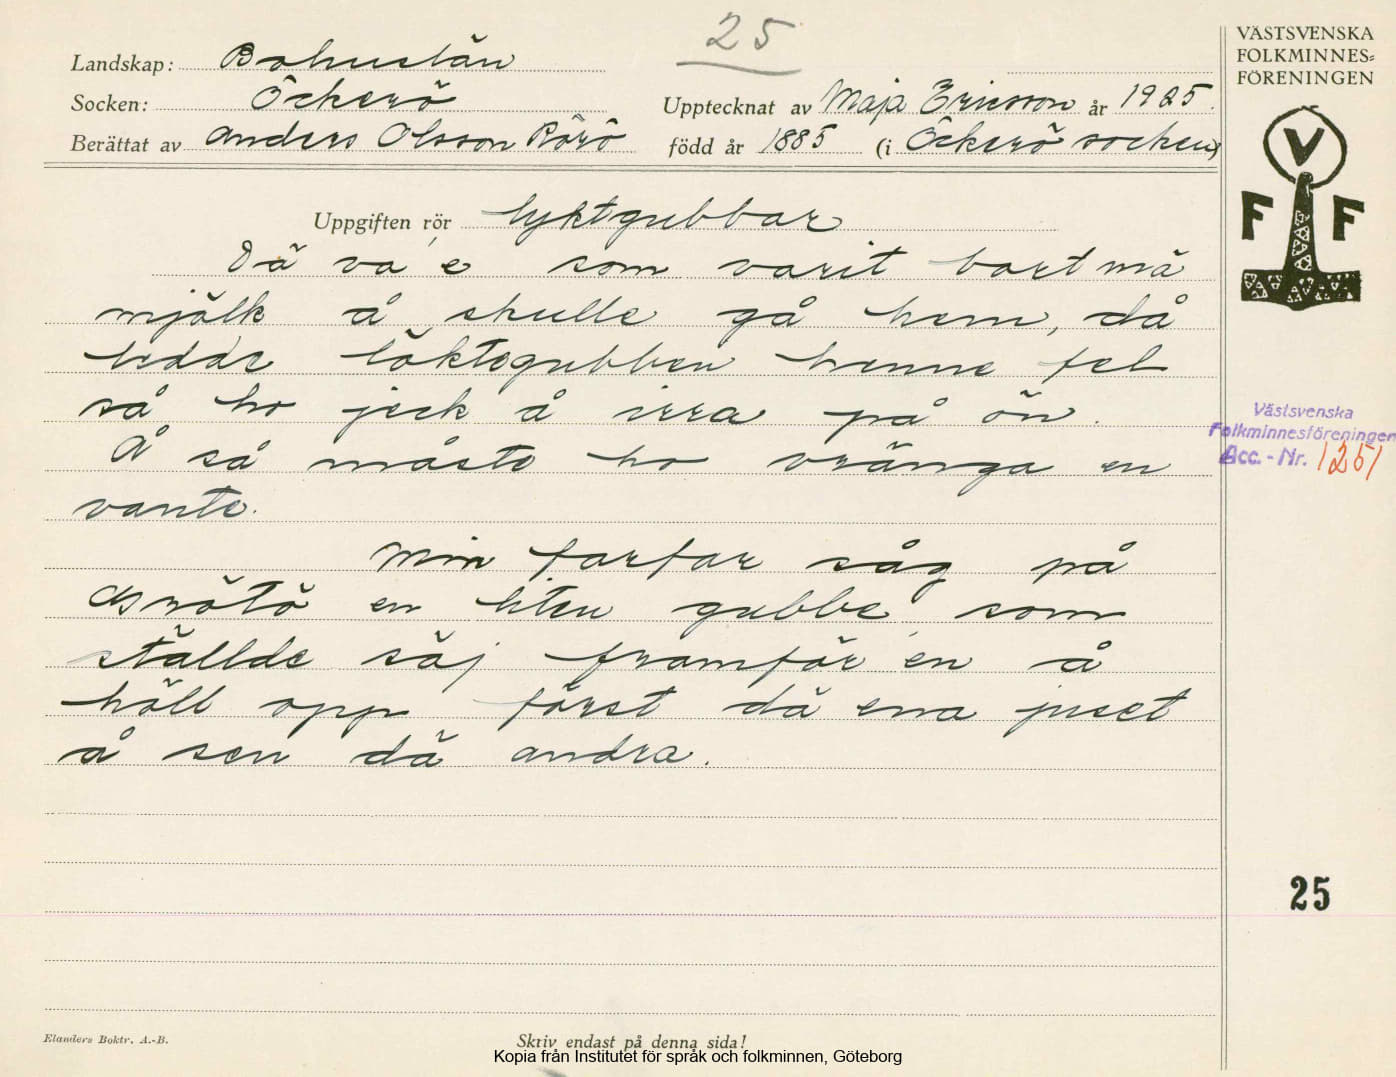 25
VÄSTSVENSKA
FOLKMINNES-
FÖRENINGEN
Landskap: Bohuslän
Socken: Öckerö
Upptecknat av Maja Ericsson år 1925.
Berättat av Anders Olsson Rörö
född år 1885 (i Öckerö socken)
V
F F
Uppgiften rör lyktgubbar
Dä va e som varit bort mä
mjölk å skulle gå hem, då
ledde löktegubben henne fel
så ho jeck å irra på ön.
Å så måste ho vränga en
vante.
Min farfar såg på
en liten gubbe, som
ställde säj framför en å
höll opp först dä ena juset
å sen dä andra.
Västsvenska
Folkminnesföreningen
Acc. - Nr. 1251
25
Elanders Boktr. A.-B.
Skriv endast på denna sida!
Kopia från Institutet för språk och folkminnen, Göteborg